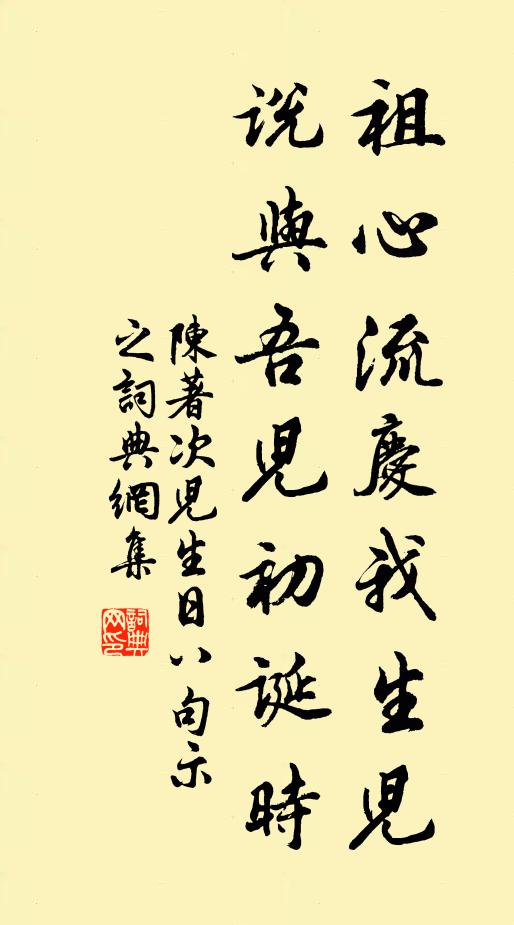 祖心流慶我生兒
說與吾兒初誕時
陳著次兒生日八句示
之詞典網集
詞典網印